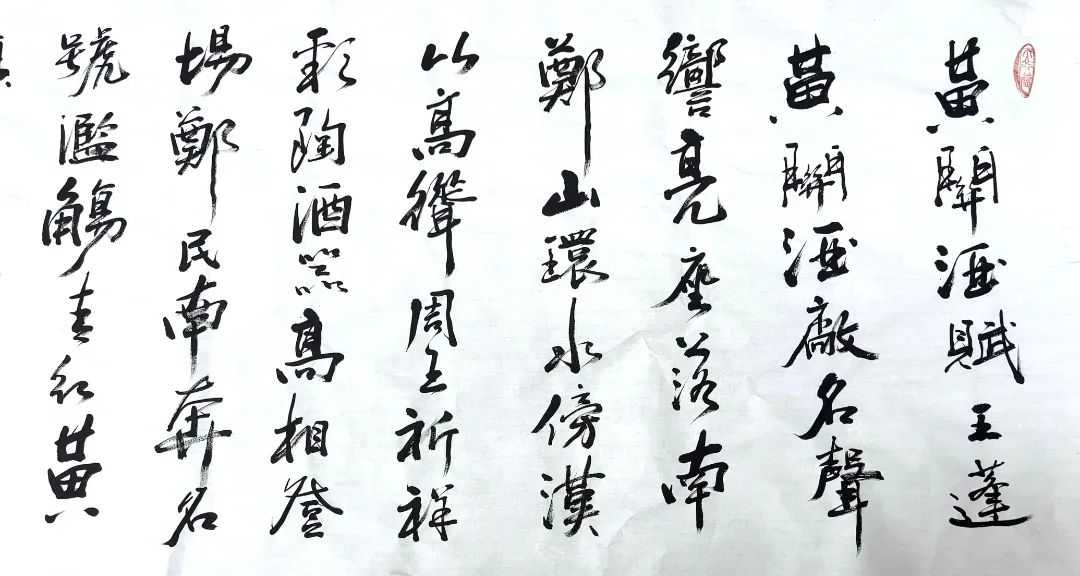 黃關酒賦 王蓬
黃關酒廠名聲
響亮座落南
鄭山環水傍漢
以高聳周王祈祥
彩陶酒器高相登
場鄭民南奔名
號濫觴黃